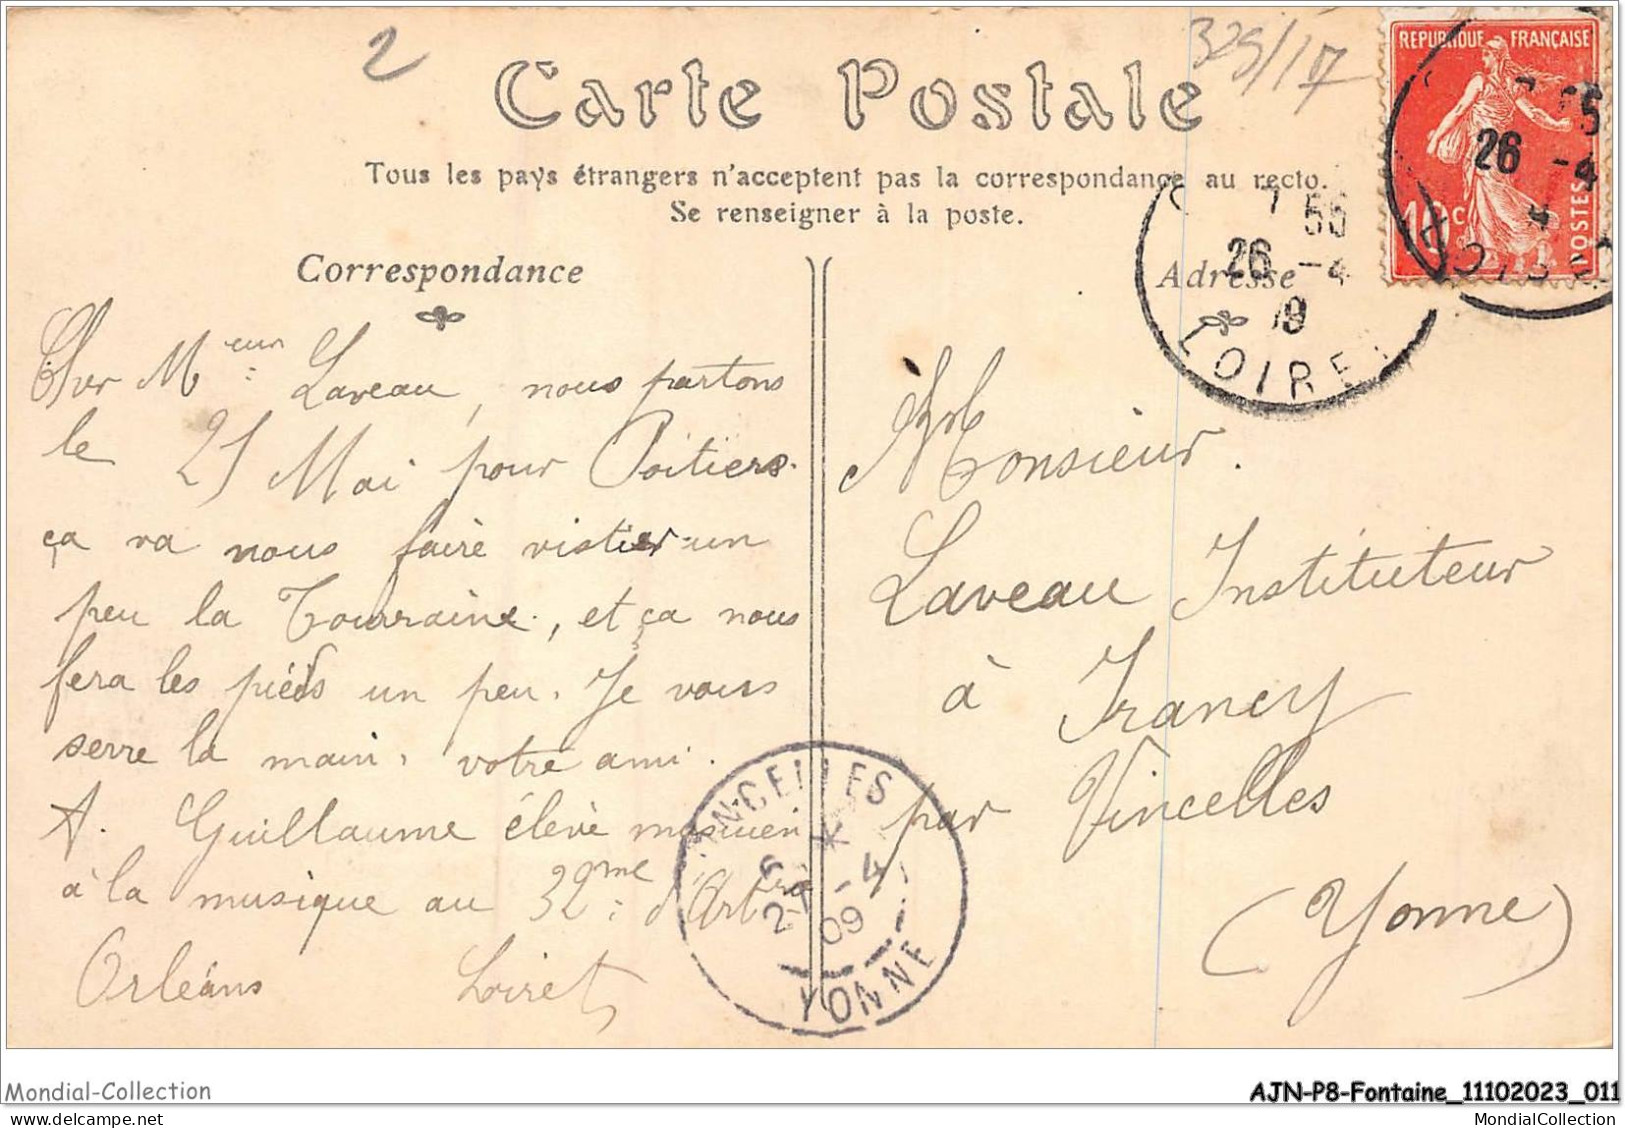 2
329/17
Carte Postale
Tous les pays étrangers n'acceptent pas la correspondance au recto.
Se renseigner à la poste.
REPUBLIQUE FRANÇAISE
10c
POSTES
26 -4
LOIRET
7 55
26 -4
09
LOIRET
Correspondance
Adresse
Cher Meur Laveau, nous partons
le 21 Mai pour Poitiers.
ça va nous faire vistier un
peu la Tourraine, et ça nous
fera les pieds un peu. Je vous
serre la main, votre ami.
A. Guillaume élève musicien
à la musique au 32me d'Artrie
Orléans Loiret
Monsieur
Laveau Instituteur
à Irancy
par Vincelles
(Yonne)
VINCELLES
6
27 -4
09
YONNE
Mondial-Collection
AJN-P8-Fontaine_11102023_011
MondialCollection